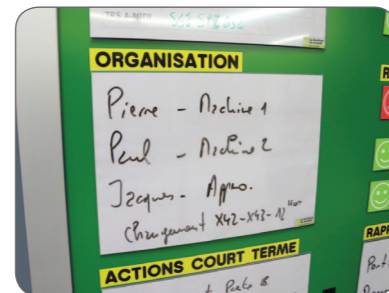 TRS A-MIDI
ORGANISATION
Pierre - Machine 1
Paul - Machine 2
Jacques - Appro.
Changement X42-X43-12
ACTIONS COURT TERME
RAPP